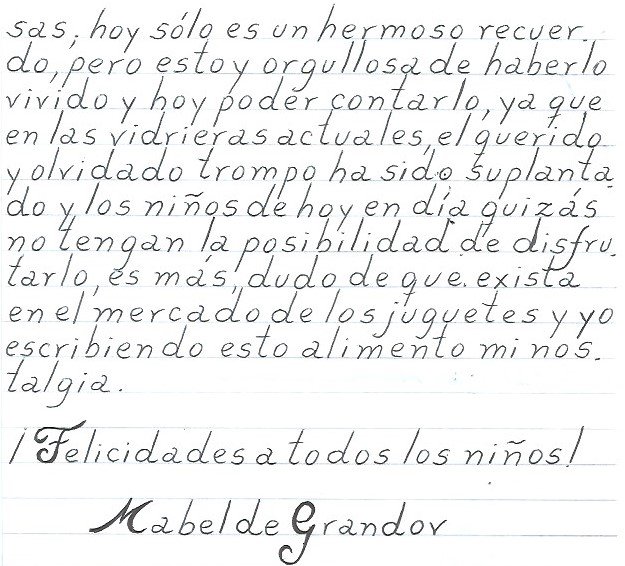 sas, hoy sólo es un hermoso recuer-
do, pero estoy orgullosa de haberlo
vivido y hoy poder contarlo, ya que
en las vidrieras actuales, el querido
y olvidado trompo ha sido suplanta-
do y los niños de hoy en día quizás
no tengan la posibilidad de disfru-
tarlo, es más, dudo de que exista
en el mercado de los juguetes y yo
escribiendo esto alimento mi nos-
talgia.
¡Felicidades a todos los niños!
Mabel de Grandov